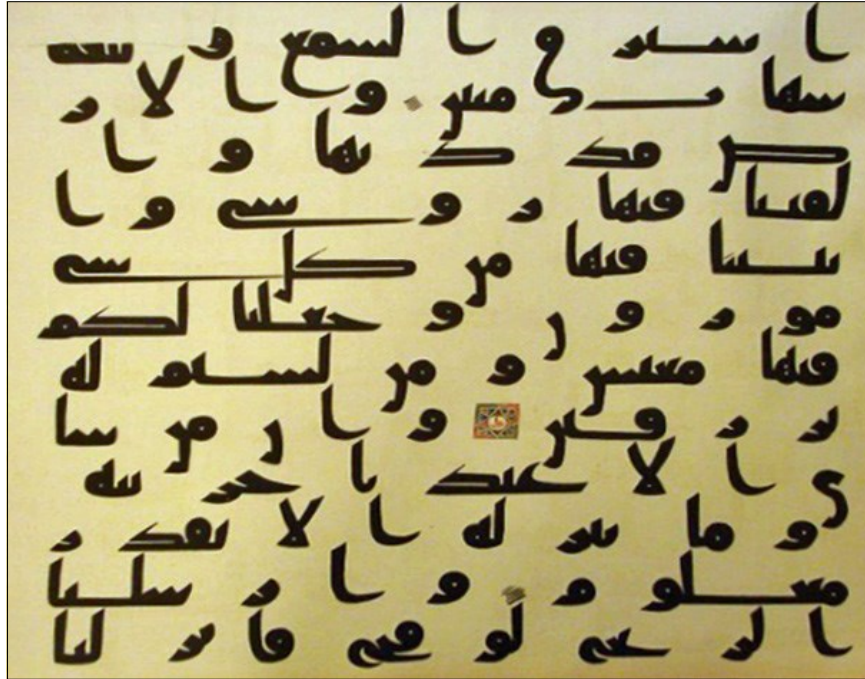 استرق السمع فاتبعه
شهاب مبين والار
ض مددنها وا
لقينا فيها روسي وا
نبتنا فيها من كل شي
موزون وجعلنا لكم
فيها معيش ومن لستم له
برزقين وان من شا
ي الا عندنا خزئنه
وما ننزله الا بقدر
معلوم وارسلنا
الريح لوقح فانزلنا